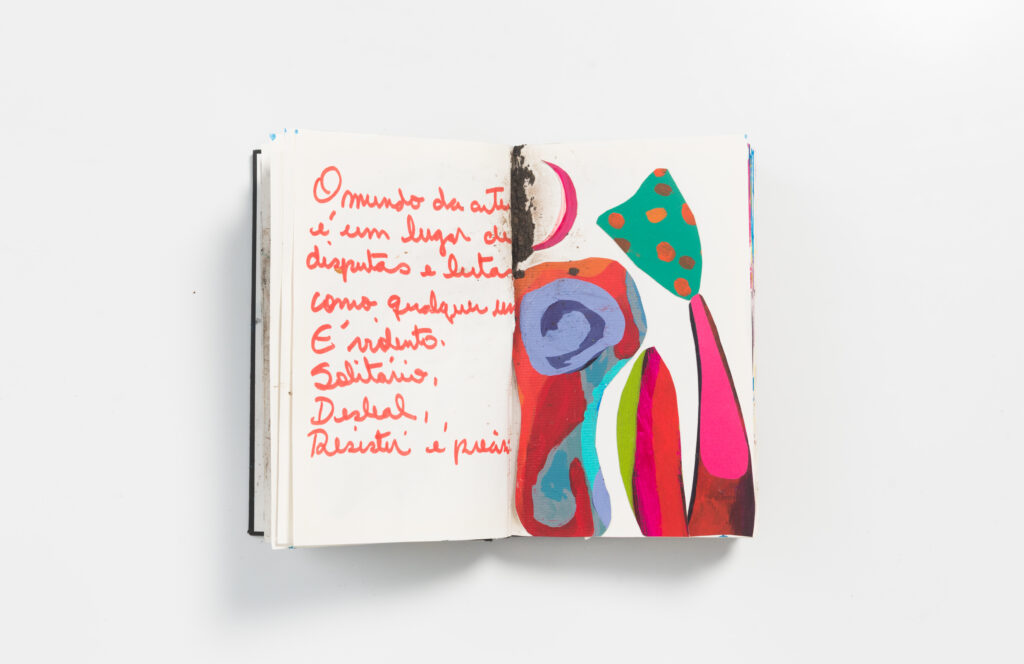 O mundo da arte
é um lugar de
disputas e lutas
como qualquer um
É violento.
Solitário,
Desleal,
Resistir é